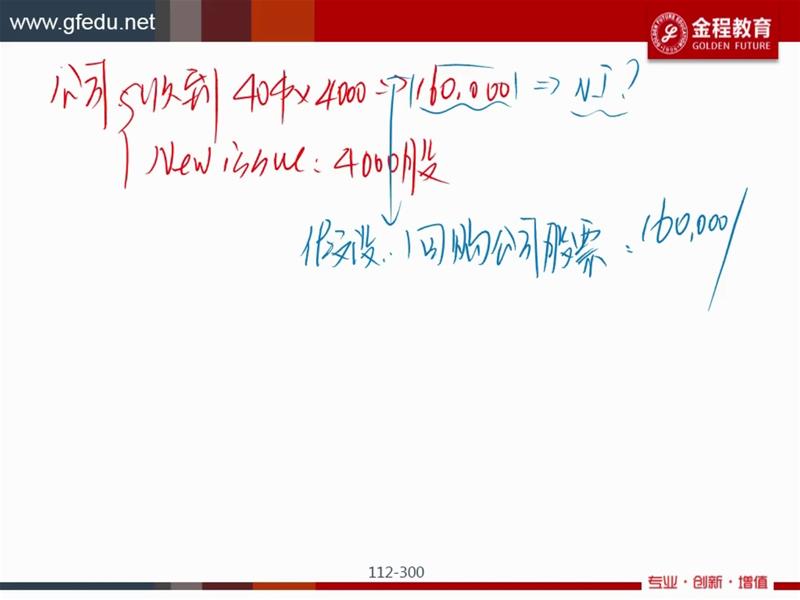 www.gfedu.net
金程教育
GOLDEN FUTURE
公司 收到 40 × 4000 => 160,000 => NI?
New issue: 4000股
假设: 回购公司股票: 160,000/
112-300
专业·创新·增值